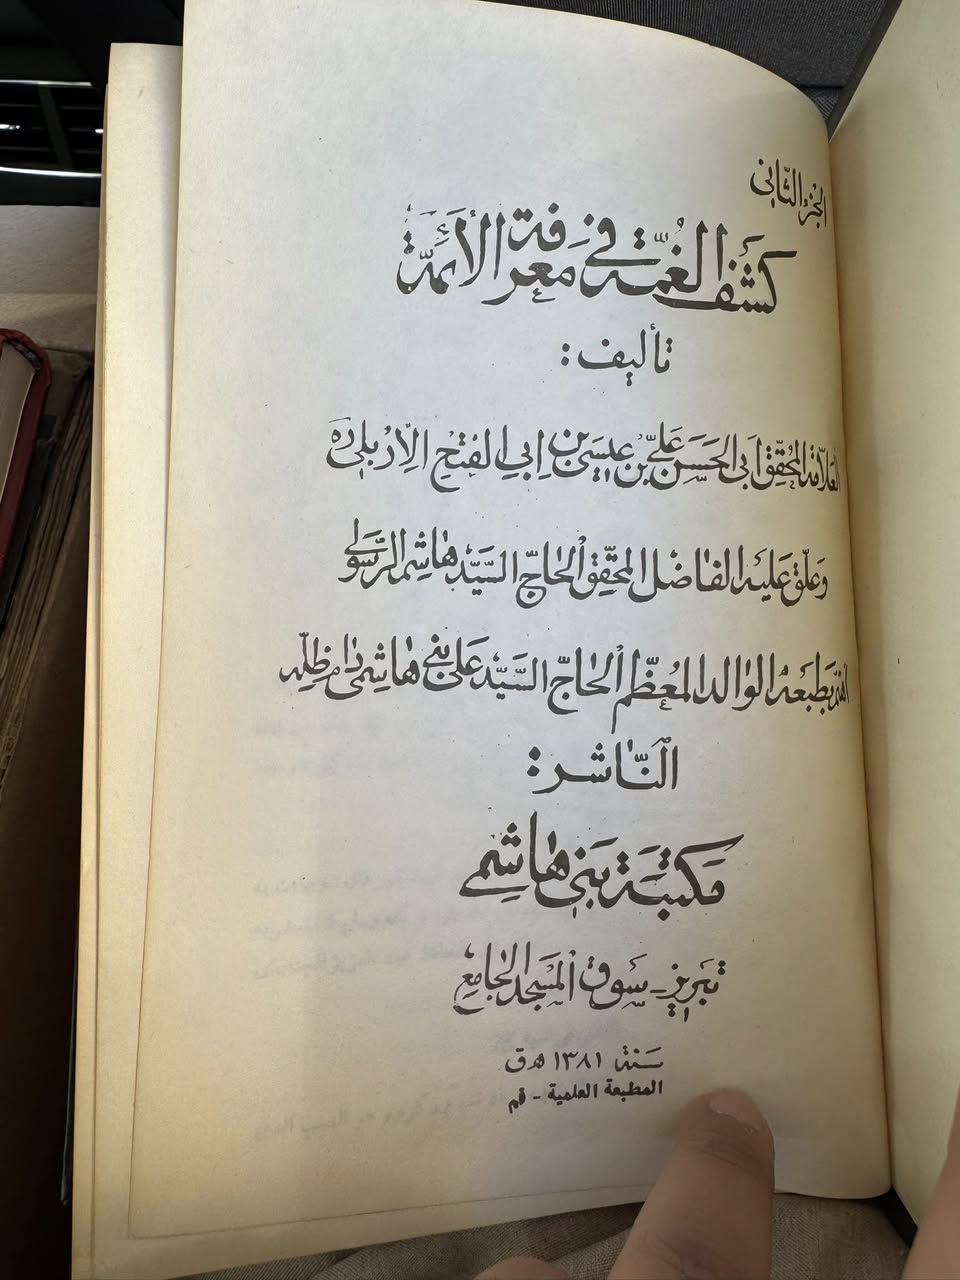 الجزء الثاني
كشف الغمة في معرفة الأئمة
تأليف:
العلامة المحقق أبي الحسن علي بن عيسى بن أبي الفتح الإربلي ره
وعلق عليه الفاضل المحقق الحاج السيد هاشم الرسولي
بطبعه الوالد المعظم الحاج السيد علي بني هاشمي دام ظله
الناشر:
مكتبة بني هاشمي
تبريز - سوق المسجد الجامع
سنة ١٣٨١ ه‍ ق
المطبعة العلمية - قم